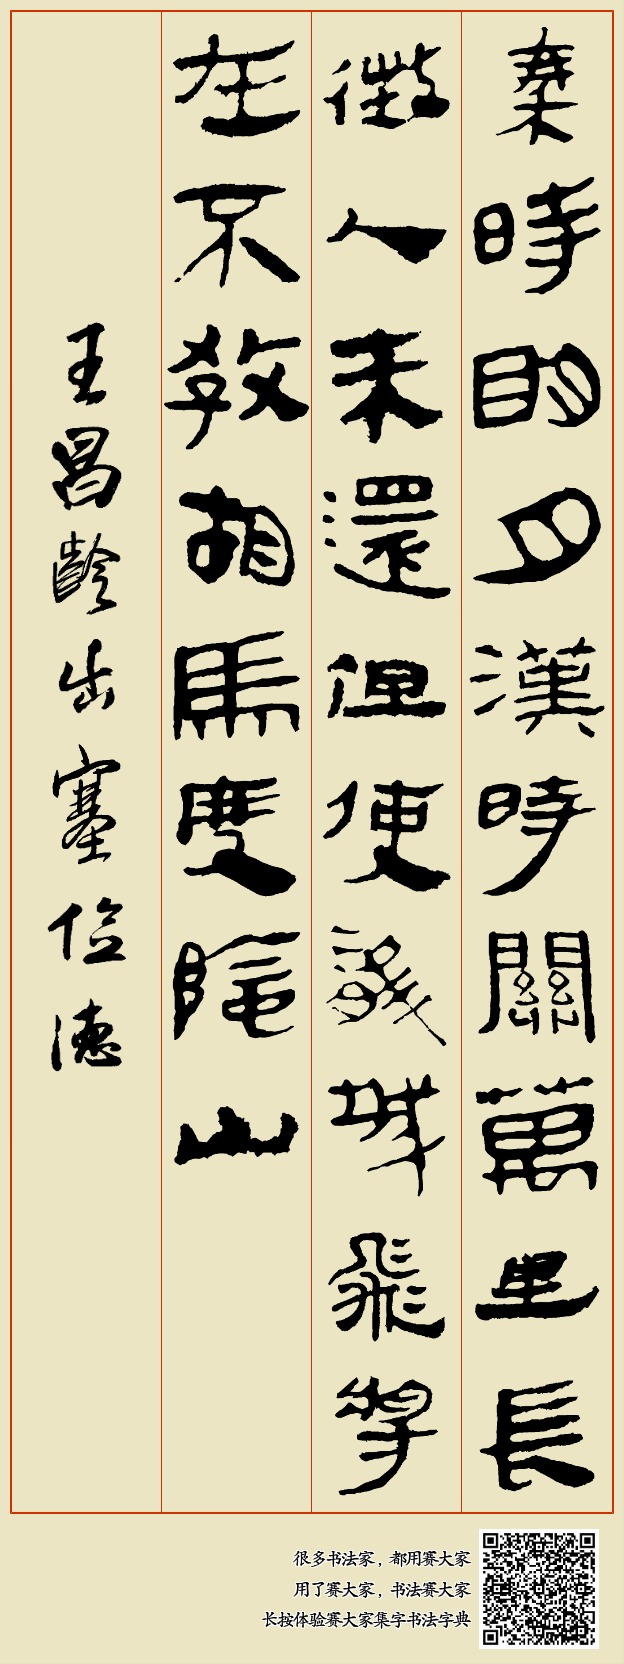 秦時明月漢時關萬里長
徵人未還但使龍城飛將
在不教胡馬度陰山
王昌齡出塞儉德
很多书法家，都用赛大家
用了赛大家，书法赛大家
长按体验赛大家集字书法字典